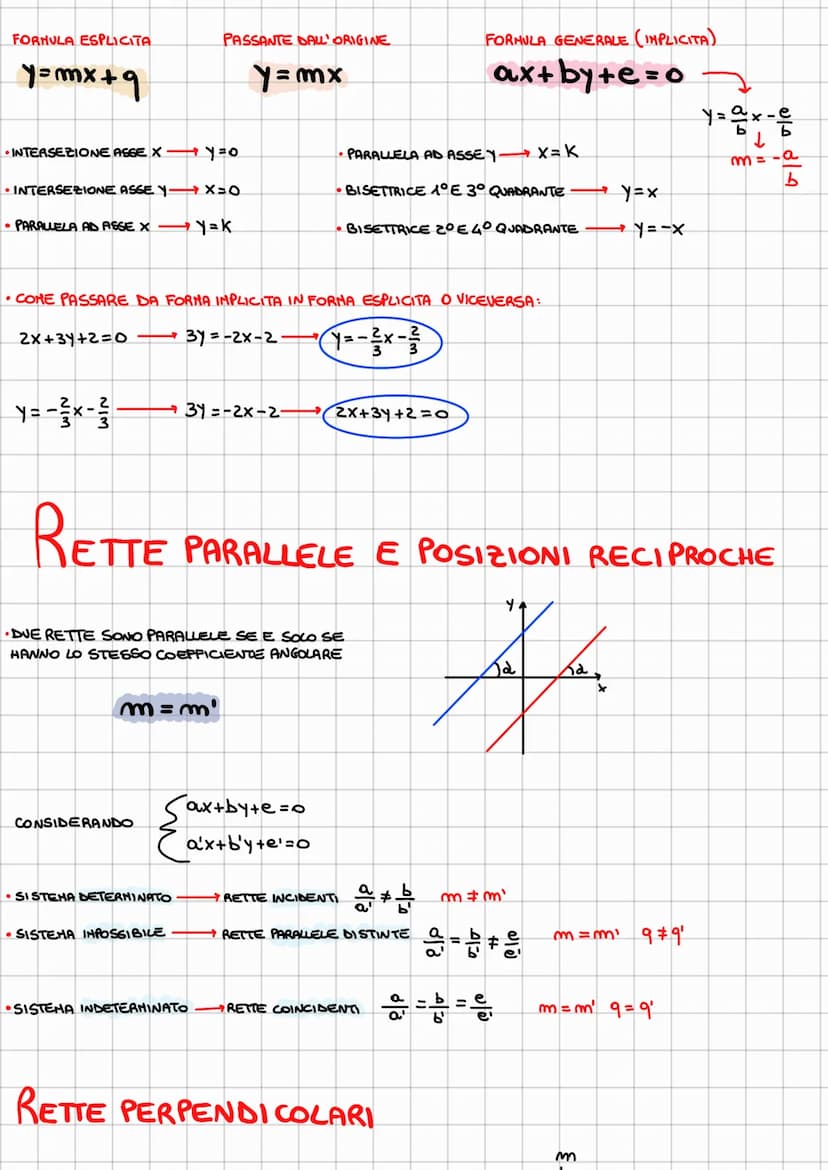 FORMULA ESPLICITA PASSANTE DALL'ORIGINE FORMULA GENERALE (IMPLICITA)
y=mx+q y=mx ax+by+e=0
y=a/b x-e/b
m=-a/b
• INTERSEZIONE ASSE X → y=0 • PARALLELA AD ASSE Y → x=K
• INTERSEZIONE ASSE Y → x=0 • BISETTRICE 1° E 3° QUADRANTE → y=x
• PARALLELA AD ASSE X → y=K • BISETTRICE 2° E 4° QUADRANTE → y=-x
• COME PASSARE DA FORMA IMPLICITA IN FORMA ESPLICITA O VICEVERSA:
2x+3y+2=0 → 3y=-2x-2 → y=-2/3x-2/3
y=-2/3x-2/3 → 3y=-2x-2 → 2x+3y+2=0
RETTE PARALLELE E POSIZIONI RECIPROCHE
y
• DUE RETTE SONO PARALLELE SE E SOLO SE
HANNO LO STESSO COEFFICIENTE ANGOLARE
α α
x
m=m'
CONSIDERANDO { ax+by+e=0
a'x+b'y+e'=0
• SISTEMA DETERMINATO → RETTE INCIDENTI a/a' ≠ b/b' m≠m'
• SISTEMA IMPOSSIBILE → RETTE PARALLELE DISTINTE a/a' = b/b' ≠ e/e' m=m' q≠q'
• SISTEMA INDETERMINATO → RETTE COINCIDENTI a/a' = b/b' = e/e' m=m' q=q'
RETTE PERPENDICOLARI
m